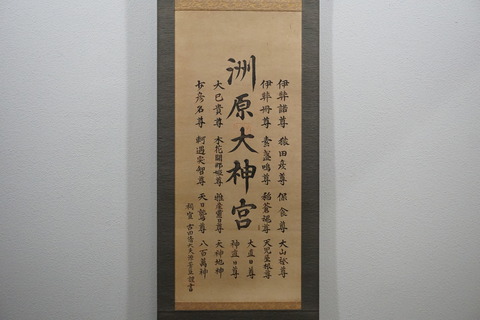 伊弉諾尊 猿田彦尊 保食尊 大山祇尊
伊弉冊尊 素盞嗚尊 稲蒼魂尊 天児屋根尊
洲原大神宮
大直日尊
神直日尊
大己貴尊 木花開耶姫尊 稚産霊日尊 天神地神
少彦名尊 軻遇突智尊 天日鷲尊 八百万神